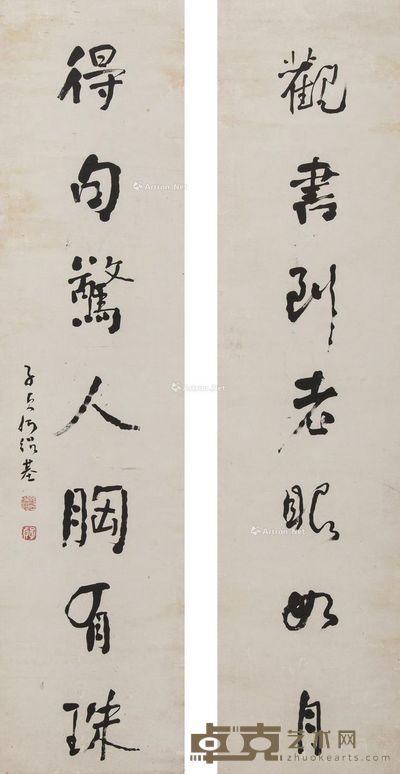 觀書到老眼如月
得句驚人胸有珠
子貞何紹基
Artron.Net
Artron.Net
Artron.Net
卓克艺术网
www.zhuokearts.com